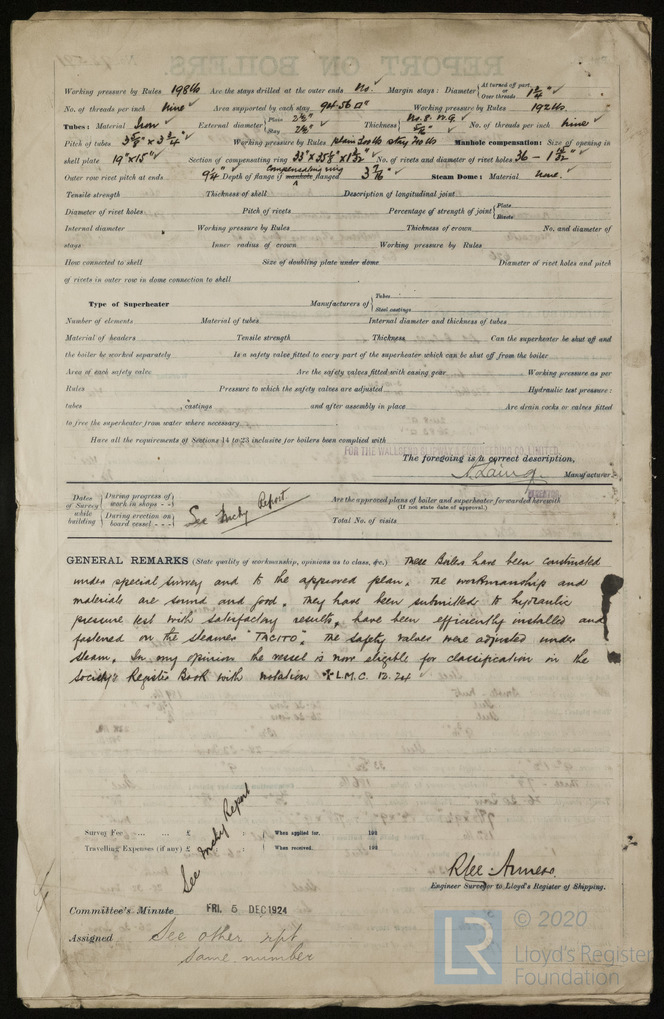 Working pressure by Rules 198 lbs Are the stays drilled at the outer ends No. Margin stays: Diameter { At turned off part, or Over threads 1 3/4"
No. of threads per inch Nine Area supported by each stay 94.56 □" Working pressure by Rules 192 lbs
Tubes: Material Iron External diameter { Plain 2 1/2" Stay 2 1/2" Thickness { No. 8. W.G. 5/16" No. of threads per inch Nine
Pitch of tubes 3 5/8" x 3 3/4" Working pressure by Rules plain 200 lbs stay 210 lbs Manhole compensation: Size of opening in
shell plate 19" x 15" Section of compensating ring No. of rivets and diameter of rivet holes 36 - 1
Outer row rivet pitch at ends 9 1/4 Depth of flange if manhole flanged compensating ring 3 7/16" Steam Dome: Material None.
Tensile strength Thickness of shell Description of longitudinal joint
Diameter of rivet holes Pitch of rivets Percentage of strength of joint { Plate Rivets
Internal diameter Working pressure by Rules Thickness of crown No. and diameter of
stays Inner radius of crown Working pressure by Rules
How connected to shell Size of doubling plate under dome Diameter of rivet holes and pitch
of rivets in outer row in dome connection to shell
Type of Superheater Manufacturers of { Tubes Steel castings
Number of elements Material of tubes Internal diameter and thickness of tubes
Material of headers Tensile strength Thickness Can the superheater be shut off and
the boiler be worked separately Is a safety valve fitted to every part of the superheater which can be shut off from the boiler
Area of each safety valve Are the safety valves fitted with easing gear Working pressure as per
Rules Pressure to which the safety valves are adjusted Hydraulic test pressure:
tubes castings and after assembly in place Are drain cocks or valves fitted
to free the superheater from water where necessary
Have all the requirements of Sections 14 to 23 inclusive for boilers been complied with
The foregoing is a correct description,
A. Laing. Manufacturer.
Dates of Survey while building { During progress of work in shops - - During erection on board vessel - - - } See Mchy Report
Are the approved plans of boiler and superheater forwarded herewith
(If not state date of approval.)
Total No. of visits
GENERAL REMARKS (State quality of workmanship, opinions as to class, &c.) These Boilers have been constructed
under special survey and to the approved plan. The workmanship and
materials are sound and good. They have been submitted to hydraulic
pressure test with satisfactory results, have been efficiently installed and
fastened on the steamer "TACITO". The safety valves were adjusted under
steam. In my opinion the vessel is now eligible for classification in the
Society's Register Book with notation ✠ L.M.C. 12.24
See Mchy Report
Survey Fee ... ... £ : : When applied for, 192
Travelling Expenses (if any) £ : : When received, 192
Engineer Surveyor to Lloyd's Register of Shipping.
Committee's Minute FRI. 5 DEC 1924
Assigned See other rpt
same number
© 2020
LR
Lloyd's Register
Foundation